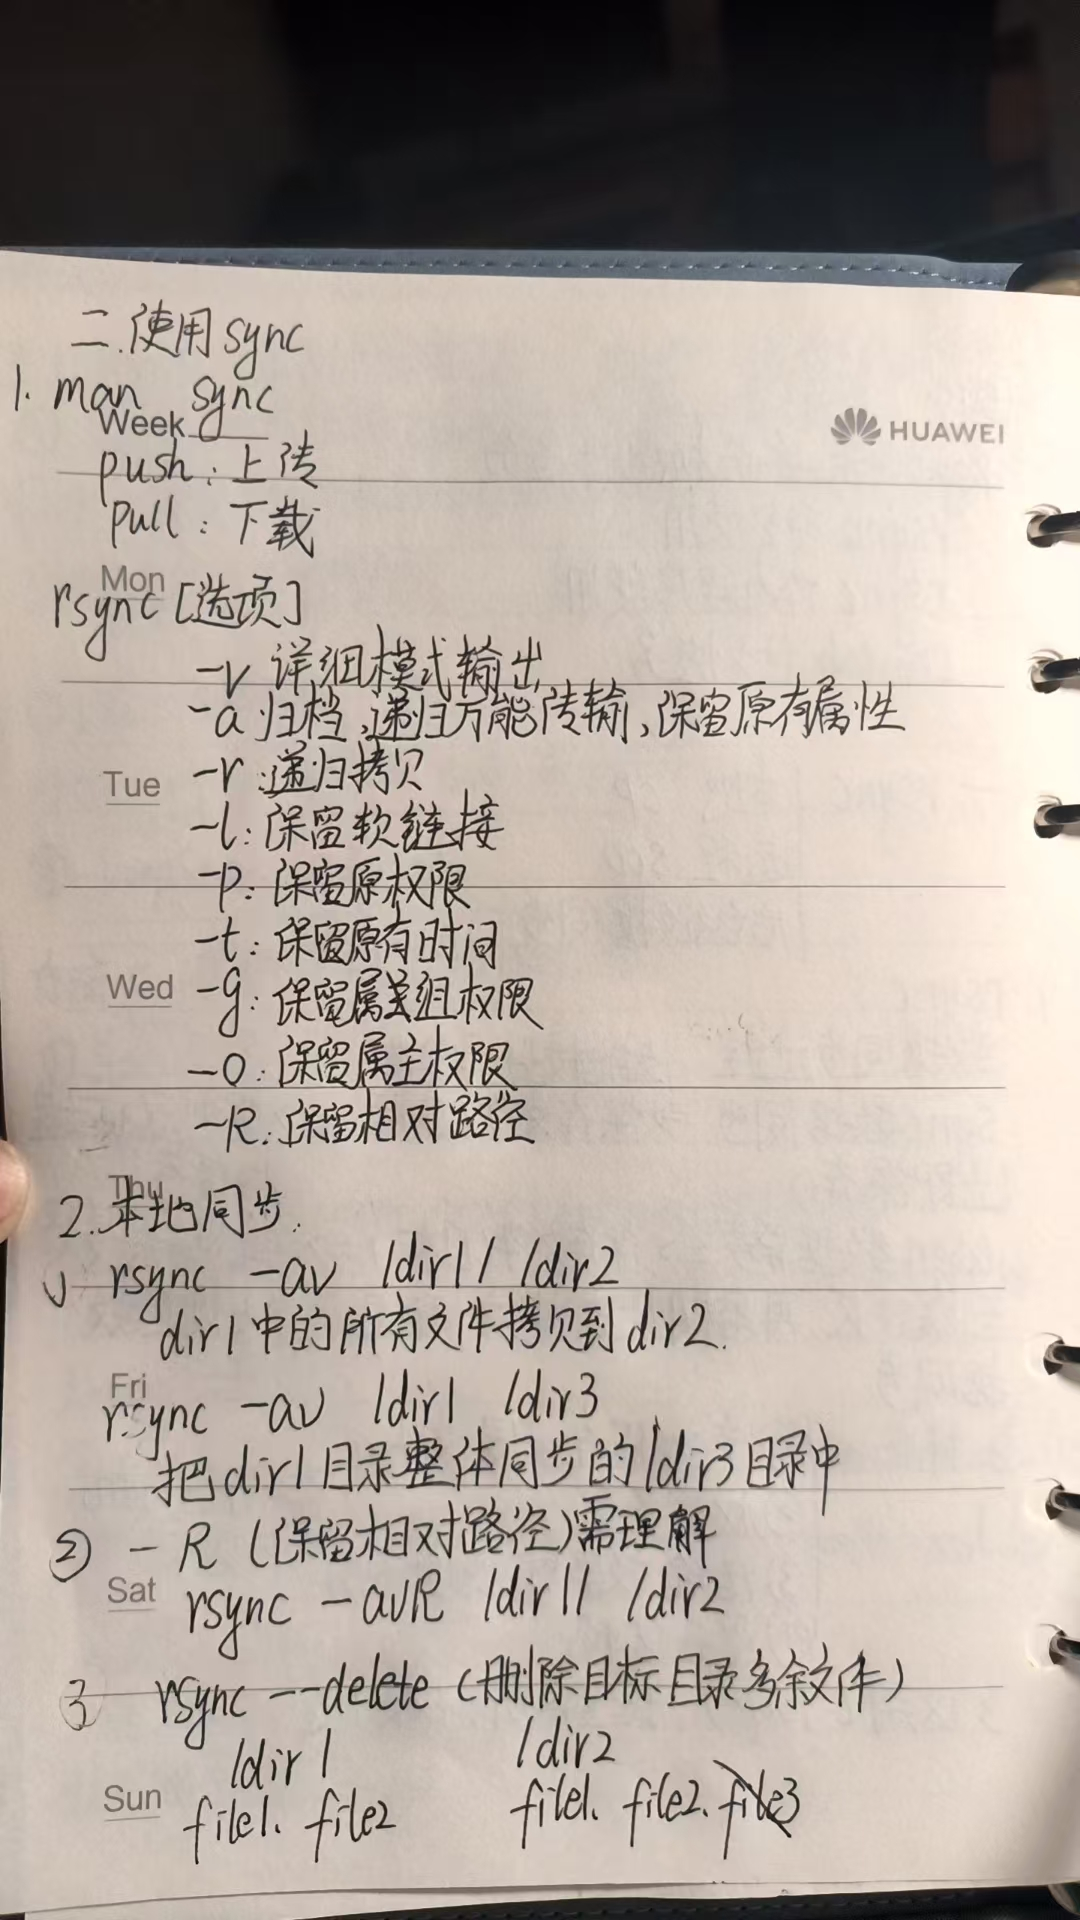 二.使用sync
1. man sync
Week
HUAWEI
push: 上传
pull: 下载
Mon
rsync [选项]
-v 详细模式输出
-a 归档,递归万能传输,保留原有属性
Tue
-r:递归拷贝
-l:保留软链接
-p:保留原权限
-t:保留原有时间
Wed
-g:保留属组权限
-o:保留属主权限
-R:保留相对路径
Thu
2.本地同步.
rsync -av /dir1/ /dir2
dir1中的所有文件拷贝到dir2.
Fri
rsync -av /dir1 /dir3
把dir1目录整体同步的/dir3目录中
② -R (保留相对路径)需理解
Sat
rsync -avR /dir1/ /dir2
③ rsync --delete (删除目标目录多余文件)
/dir1 /dir2
Sun
file1. file2 file1. file2. file3